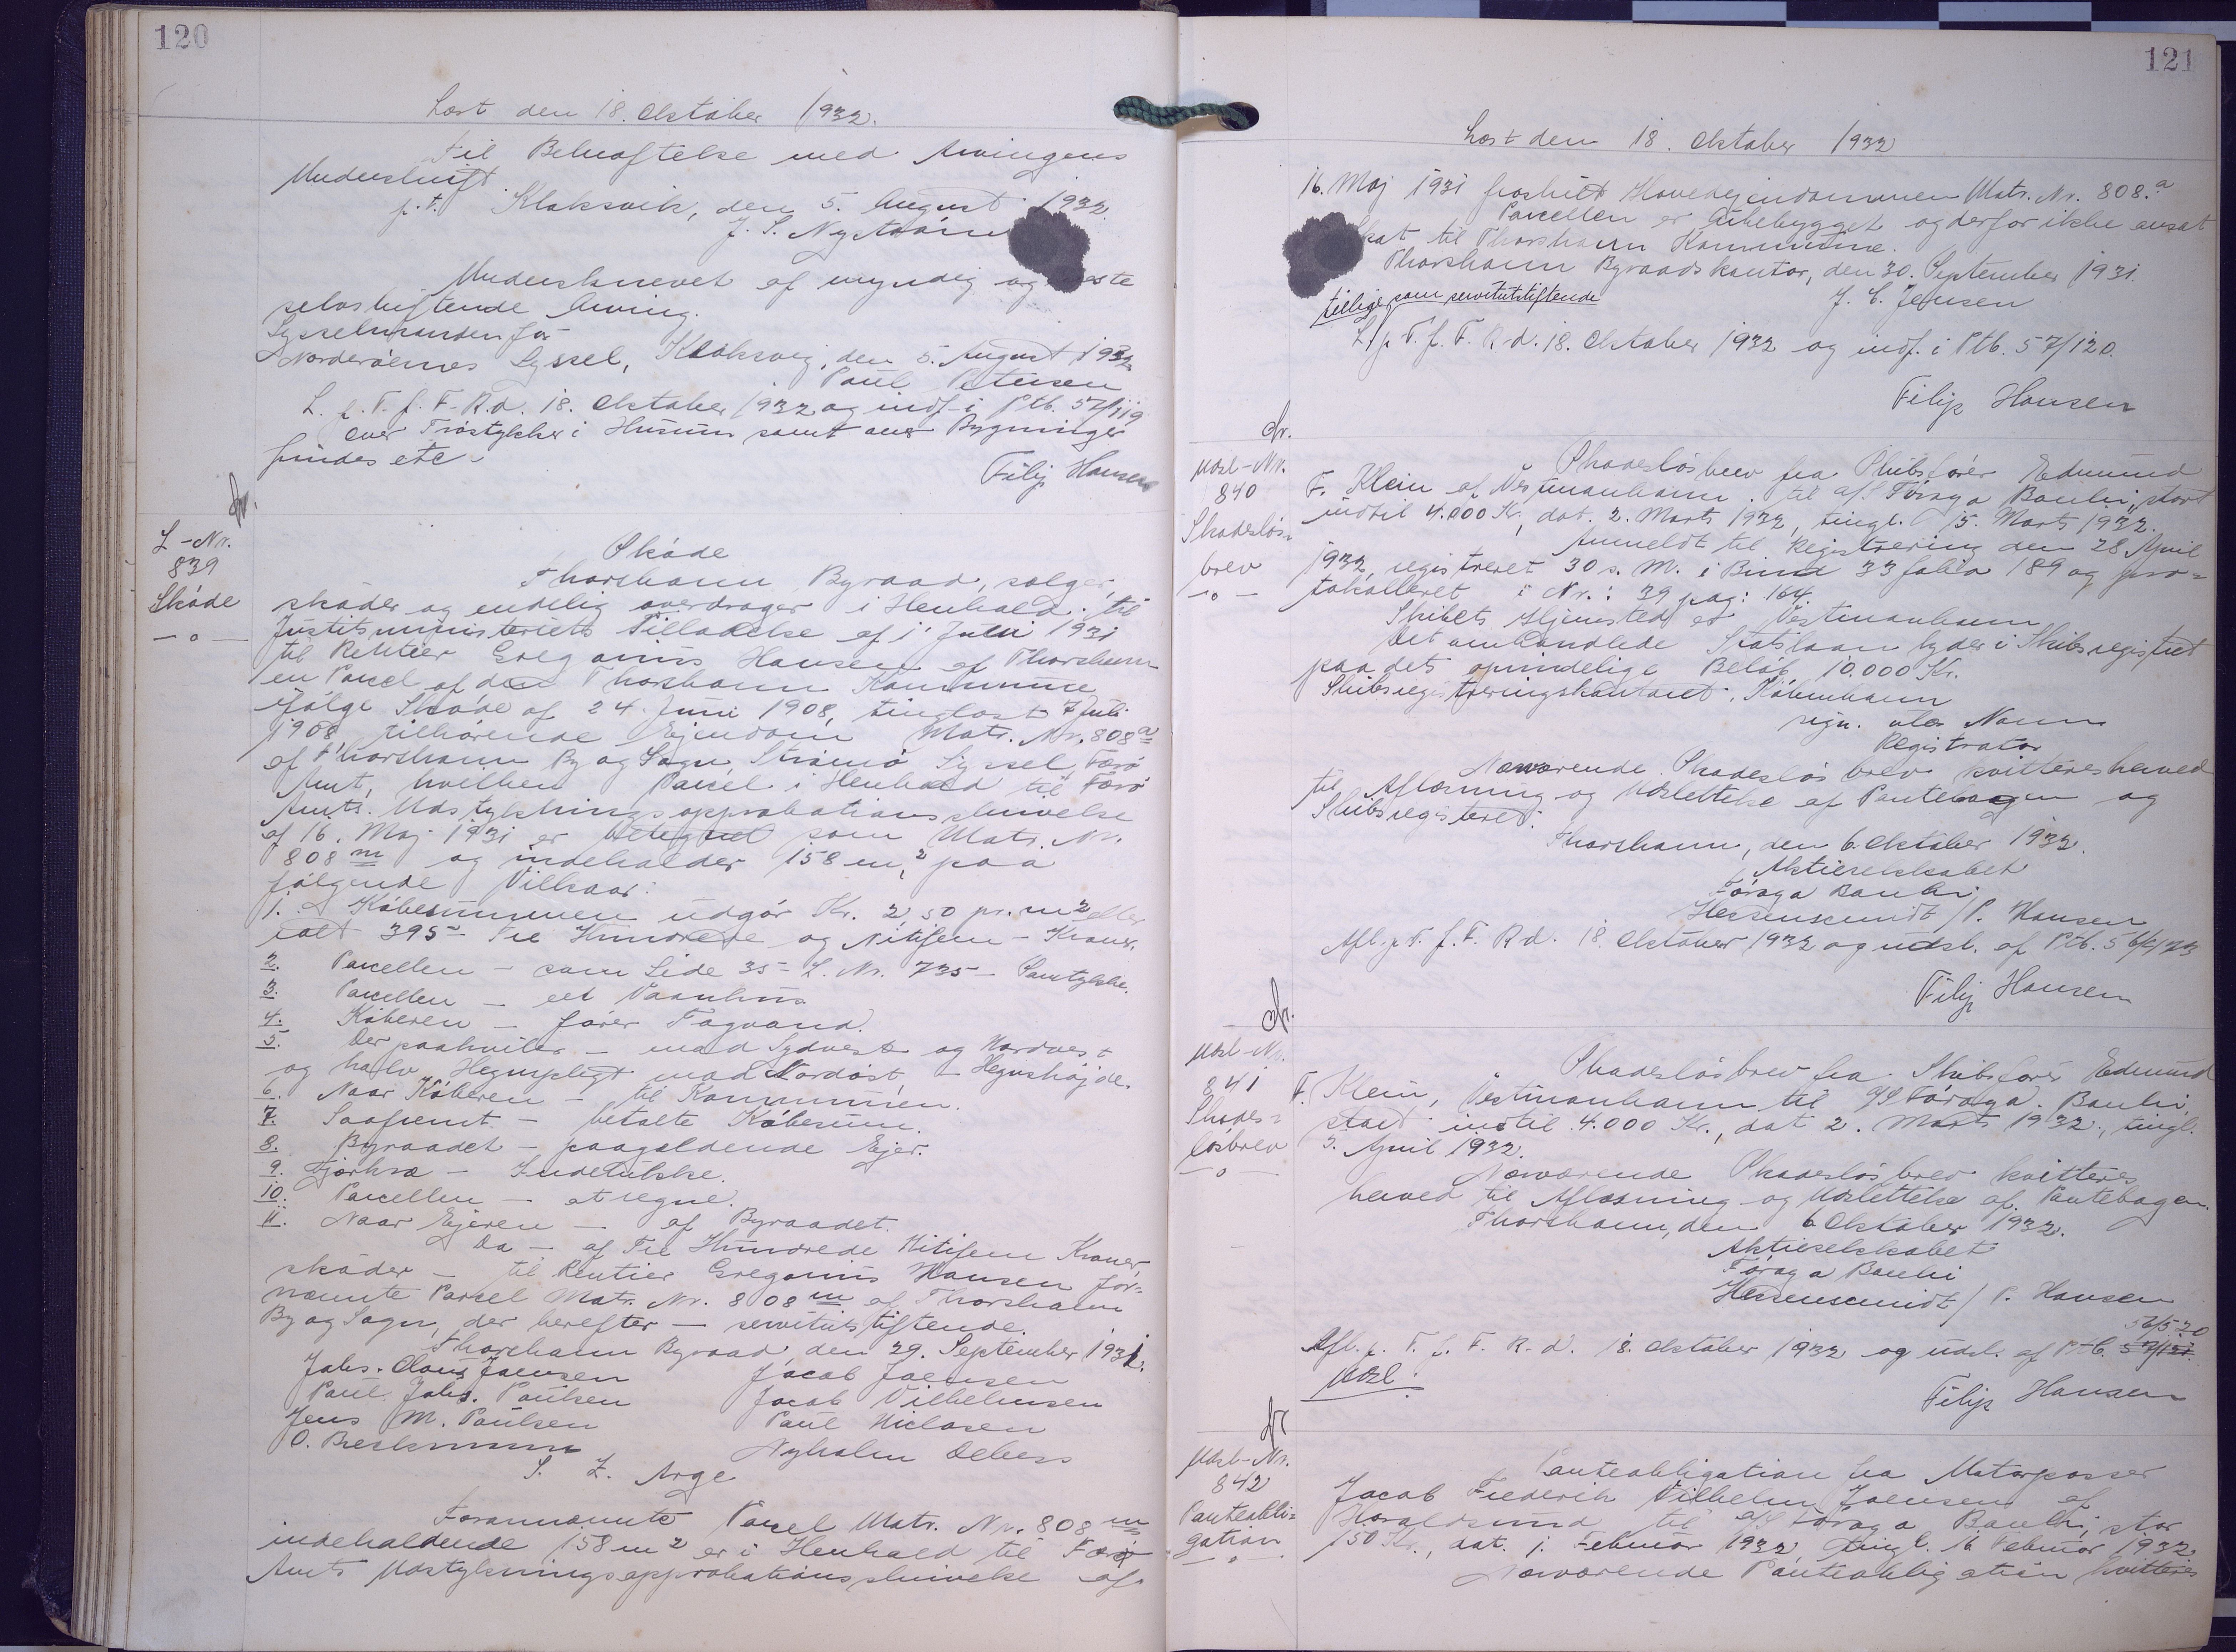 120
Læst den 18. Oktober 1932.
Til Bekræftelse med Arvingens
Underskrift.
p.t. Klaksvik, den 5. August 1932.
J. S. Nyström
Underskrevet af myndig og
selvskiftende Arving.
Sysselmanden for
Norderöernes Syssel, Klaksvig, den 5. August 1932.
Paul Petersen
L. p. T. f. F. R. d. 18. Oktober 1932 og indf. i Ptb. 57/119
over Træstykker i Husum samt over Bygninger
findes etc.
Filip Hansen
L-Nr.
839
Sköde
—o—
Sköde
Thorshavn Byraad, sælger,
sköder og endelig overdrager i Henhold til
Justitsministeriets Tilladelse af 1' Juli 1931
til Rentier Gregorius Hansen af Thorshavn
en Parcel af den Thorshavn Kommune
ifölge Sköde af 24. Juni 1908, tinglæst 7 Juli
1908 tilhörende Ejendom Matr. Nr. 808 a
af Thorshavn By og Sogn Strömö Syssel Færö
Amt, hvilken Parcel i Henhold til Færö
Amts Udstykningsapprobationsskrivelse
af 16. Maj 1931 er betegnet som Matr. Nr.
808 m og indeholder 158 m², paa
fölgende Vilkaar:
1. Köbesummen udgör Kr. 2,50 pr. m² eller
ialt 395 - Tre Hundrede og Nitifem - Kroner.
2. Parcellen - som Side 35 - L. Nr. 735 -
3. Parcellen - eet Vaanhus
4. Köberen - förer Tagvand.
5. Der paahviler - mod Sydvest og Nordvest
og halv Hegnspligt mod Nordöst, - Hegnshöjde.
6. Naar Köberen - til Kommunen.
7. Saafremt - betalte Köbesum.
8. Byraadet - paagældende Ejer.
9. Fjerkræ - Indelukke.
10. Parcellen - at regne.
11. Naar Ejeren - af Byraadet.
Da - af Tre Hundrede Nitifem Kroner,
sköder - til Rentier Gregorius Hansen for-
nævnte Parcel Matr. Nr. 808 m af Thorshavn
By og Sogn, der herefter - servitutstiftende.
Thorshavn Byraad, den 29. September 1931.
Johs. Claus Joensen Jacob Joensen
Paul Johs. Paulsen Jacob Vilhelmsen
Jens M. Poulsen Paul Niclasen
O. Nyholm Debess
S. Z. Arge
Forannævnte Parcel Matr. Nr. 808 m
indeholdende 158 m² er i Henhold til Færö
Amts Udstykningsapprobationsskrivelse af
121
Læst den 18. Oktober 1932
16. Maj 1931 fraskilt Hovedejendommen Matr. Nr. 808. a
Parcellen er ubebygget og derfor ikke ansat
Skat til Thorshavn Kommune.
Thorshavn Byraadskontor, den 30. September 1931.
J. C. Jensen
tillige som servitutstiftende
L. p. T. f. F. R. d. 18. Oktober 1932 og indf. i Ptb. 57/120.
Filip Hansen
Udsl-Nr.
840
Skadeslös-
brev
—o—
Skadeslösbrev fra Skibsförer Edmund
F. Klein af Vestmanhavn til a/s Föroya Banki, stort
indtil 4.000 Kr., dat. 2. Marts 1932, tingl. 15. Marts 1932.
Anmeldt til Registrering den 28 April
1932, registreret 30 s. M. i Bind 33 folio 189 og pro-
tokolleret i Nr.: 39 pag: 164.
Skibets Hjemsted er Vestmanhavn
Det omhandlede Statslaan lyder i Skibsregistret
paa dets oprindelige Belöb 10.000 Kr.
Skibsregistreringskontoret, Köbenhavn
sign. uden Navn
Registrator
Nærværende Skadeslösbrev kvitteres herved
til Aflæsning og Udslettelse af Pantebogen og
Skibsregisteret.
Thorshavn, den 6. Oktober 1932.
Aktieselskabet
Föroya Banki
Hessenscmidt / P. Hansen
Afl. p. T. f. F. R d. 18. Oktober 1932 og udsl. af Ptb.
Filip Hansen
Udsl-Nr.
841
Skades-
lösbrev
—o—
Skadeslösbrev fra Skibsförer Edmund
F. Klein, Vestmanhavn til a/s Föroya Banki,
stort indtil 4.000 Kr., dat 2. Marts 1932, tingl.
3. April 1932.
Nærværende Skadeslösbrev kvitteres
herved til Aflæsning og Udslettelse af Pantebogen.
Thorshavn, den 6 Oktober 1932.
Aktieselskabet
Föroya Banki
Hessenscmidt / P. Hansen
56/520
Afl. p. T. f. F. R. d. 18. Oktober 1932 og udsl. af Ptb. 57/121.
Udsl.
Filip Hansen
Udsl-Nr.
842
Panteobli-
gation
—o—
Panteobligation fra Motorpasser
Jacob Frederik Vilhelm Joensen af
Haraldsund til a/s Föroya Banki, stor
150 Kr., dat. 1. Februar 1932, tingl. 16 Februar 1932
Nærværende Panteobligation kvitteres